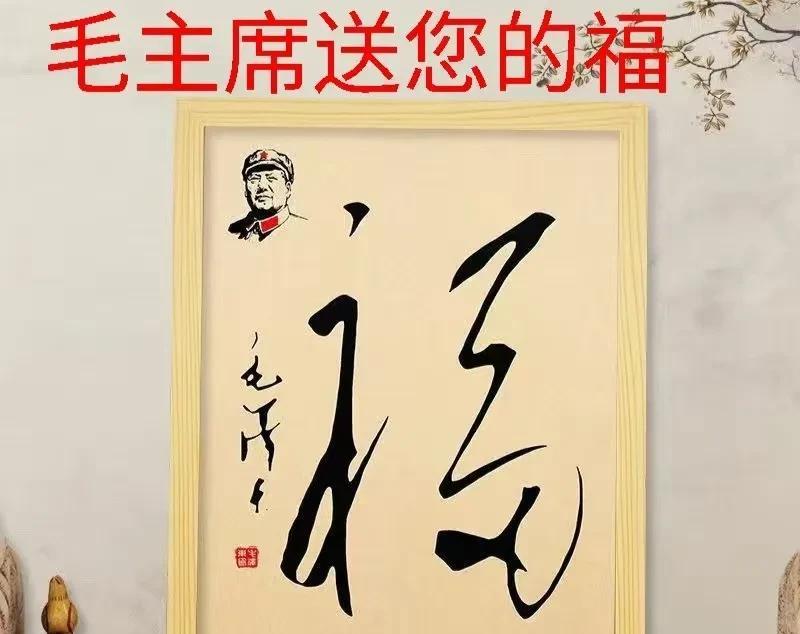 毛主席送您的福
福
毛泽东